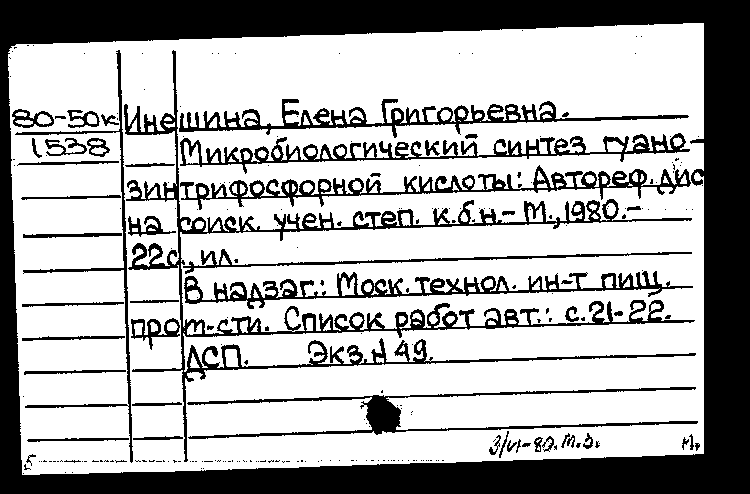 80-50к Инешина, Елена Григорьевна.
1538 Микробиологический синтез гуано-
зинтрифосфорной кислоты: Автореф. дис
на соиск. учен. степ. к.б.н.- М., 1980.-
22с., ил.
В надзаг.: Моск. технол. ин-т пищ.
пром-сти. Список работ авт.: с.21-22.
ДСП. Экз.№49.
3/VI-80. М.